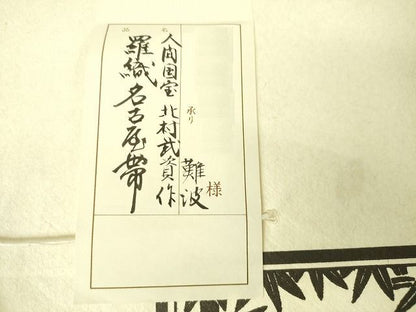 様
承り
難波
品名
人間国宝 北村武資作
羅織名古屋帯